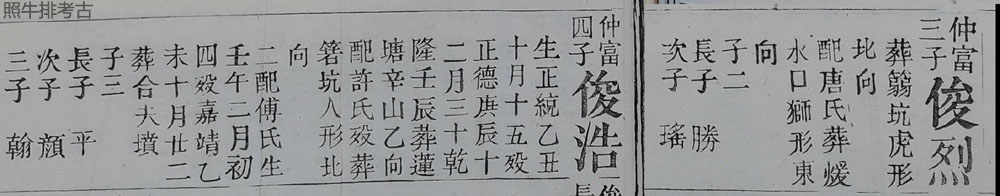 照牛排考古
仲富三子 俊烈
葬篛坑虎形
北向
配唐氏葬煖
水口獅形東
向
子二
長子 勝
次子 瑤
仲富四子 俊浩
生正統乙丑
十月十五殁
正德庚辰十
二月三十乾
隆壬辰葬蓮
塘辛山乙向
配許氏殁葬
箬坑人形北
向
二配傅氏生
壬午二月初
四殁嘉靖乙
未十月廿二
葬合夫墳
子三
長子 平
次子 顔
三子 翰